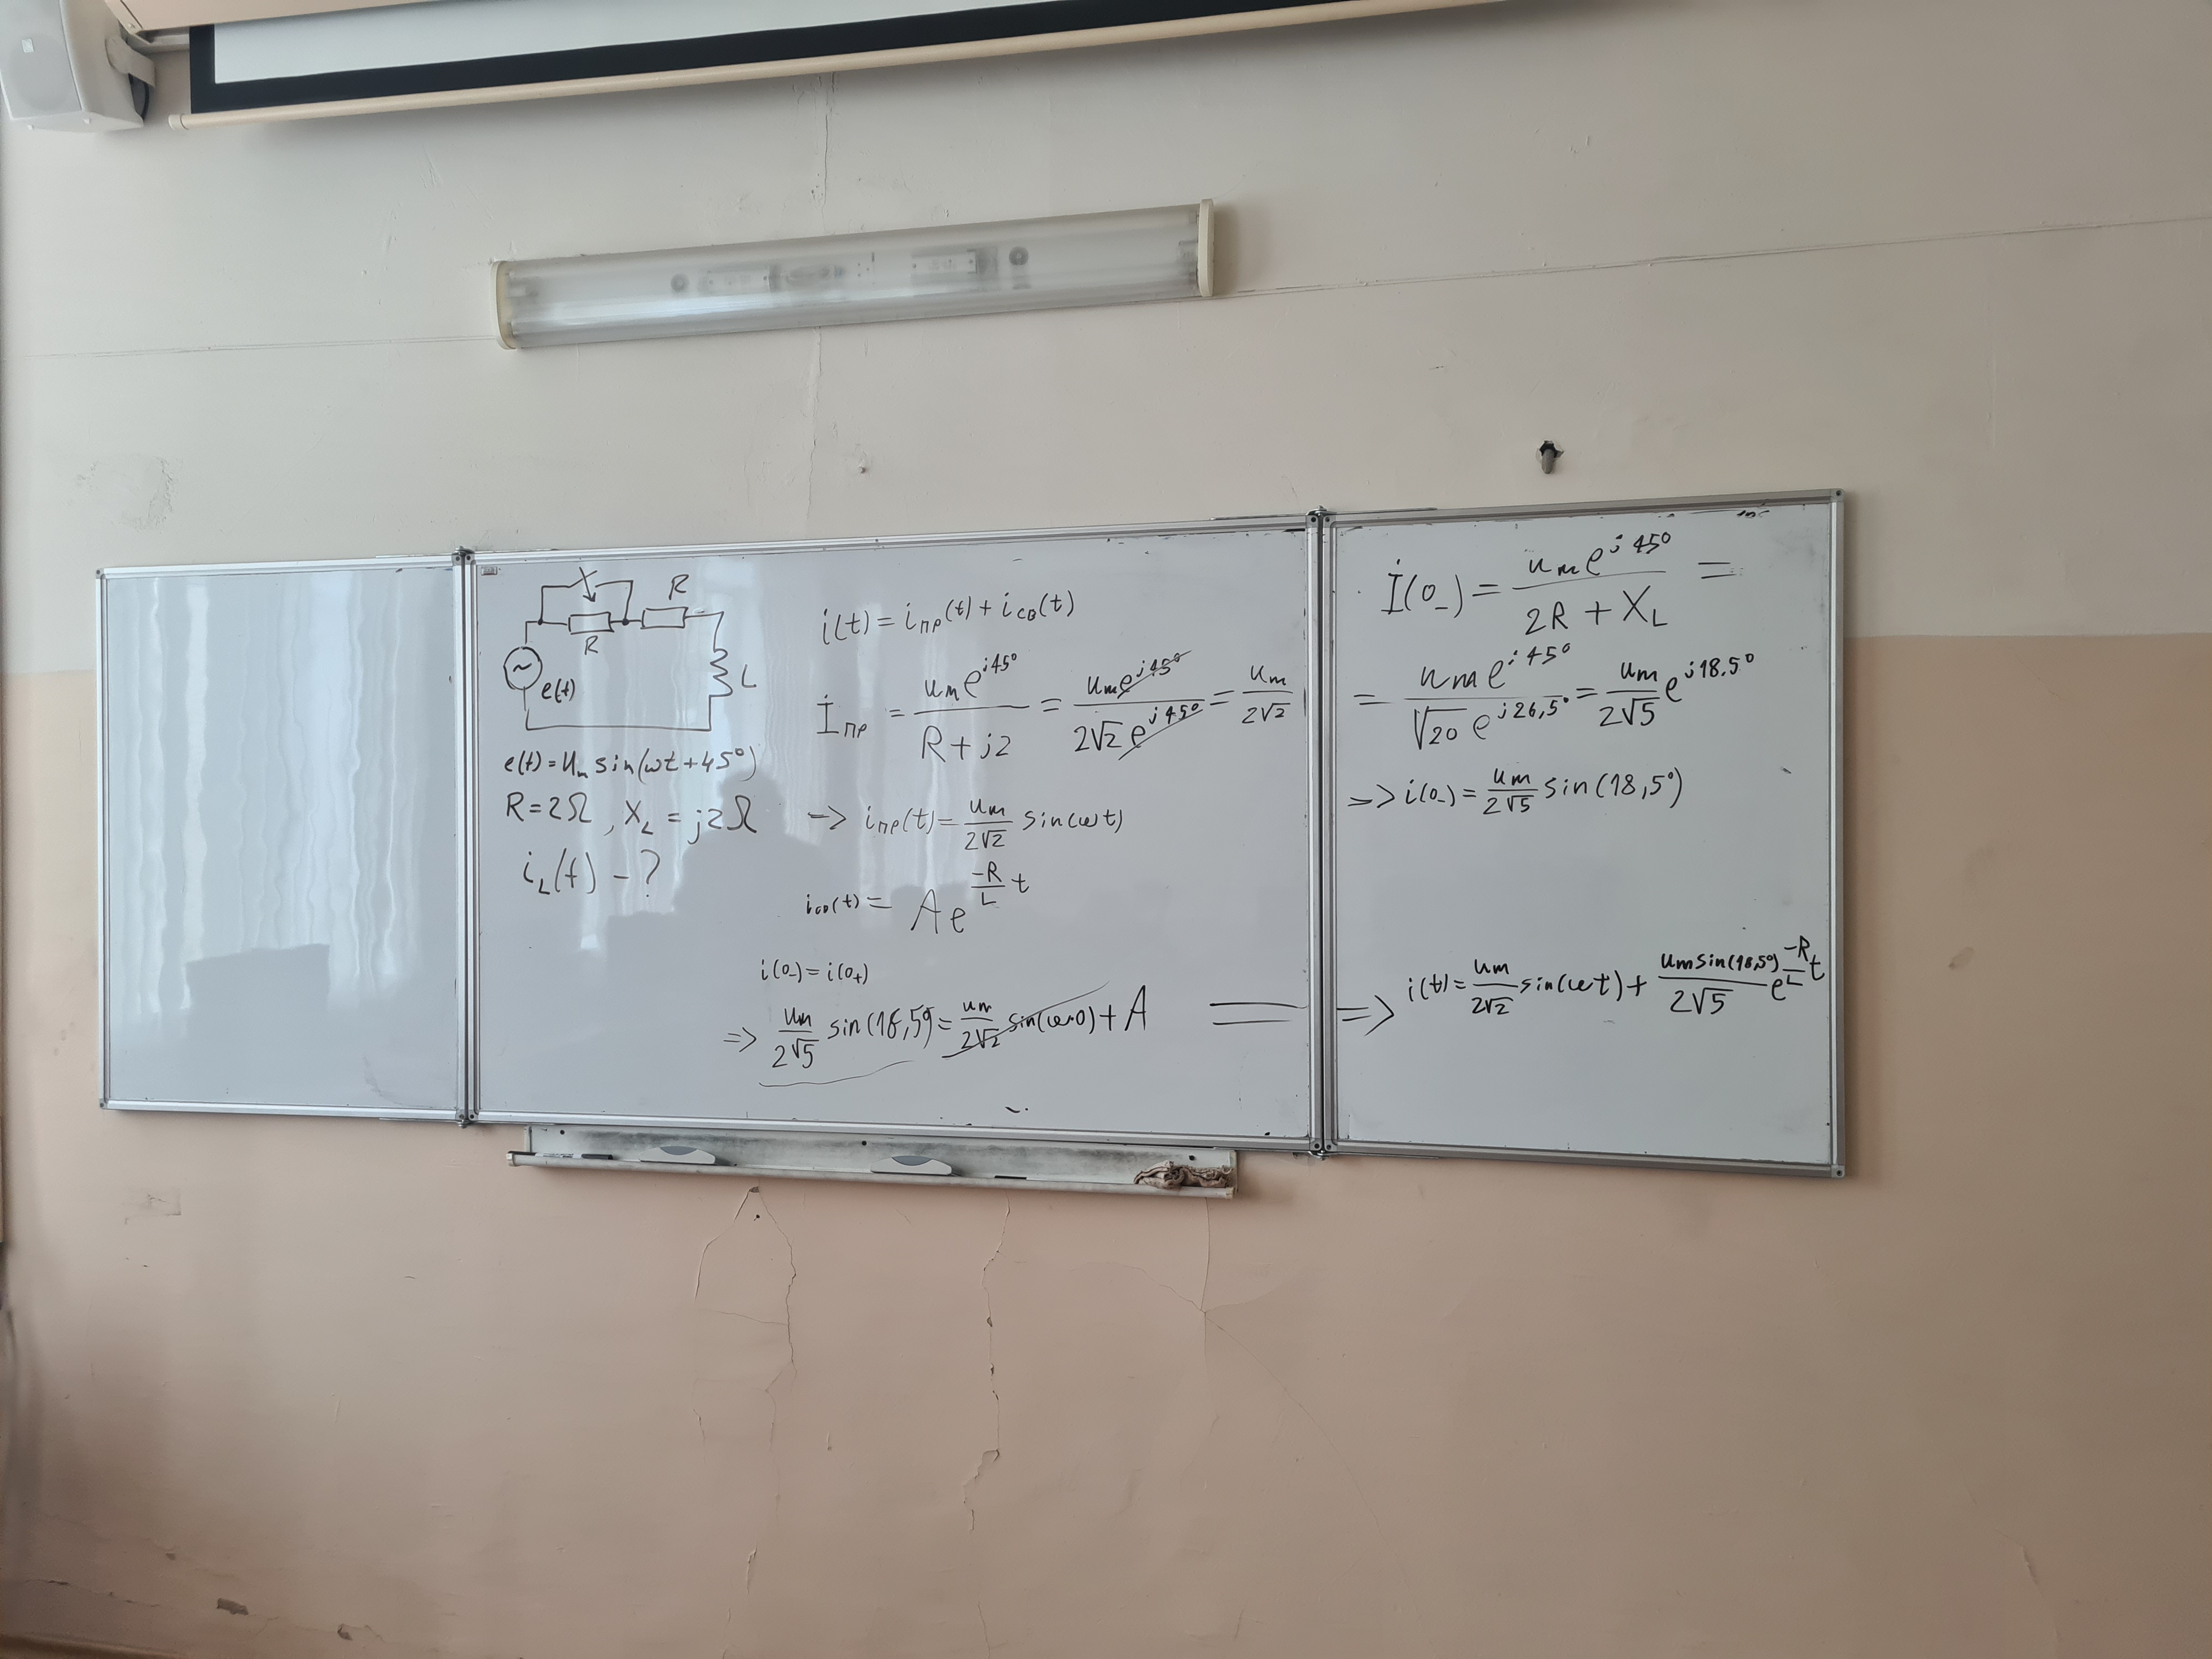 R
R
L
e(t)
e(t) = Um sin(ωt + 45°)
R = 2Ω , X_L = j2Ω
i_L(t) - ?
i(t) = i_пр(t) + i_св(t)
İ_пр = Um e^{j45°} / (R + j2) = Um e^{j45°} / (2√2 e^{j45°}) = Um / (2√2)
=> i_пр(t) = Um / (2√2) sin(ωt)
i_св(t) = A e^{-R/L t}
i(0_-) = i(0_+)
=> Um / (2√5) sin(18,5°) = Um / (2√2) sin(ω·0) + A
İ(0_-) = Um e^{j45°} / (2R + X_L) =
= Um e^{j45°} / (√20 e^{j26,5°}) = Um / (2√5) e^{j18.5°}
=> i(0_-) = Um / (2√5) sin(18,5°)
=> i(t) = Um / (2√2) sin(ωt) + Um sin(18,5°) / (2√5) e^{-R/L t}